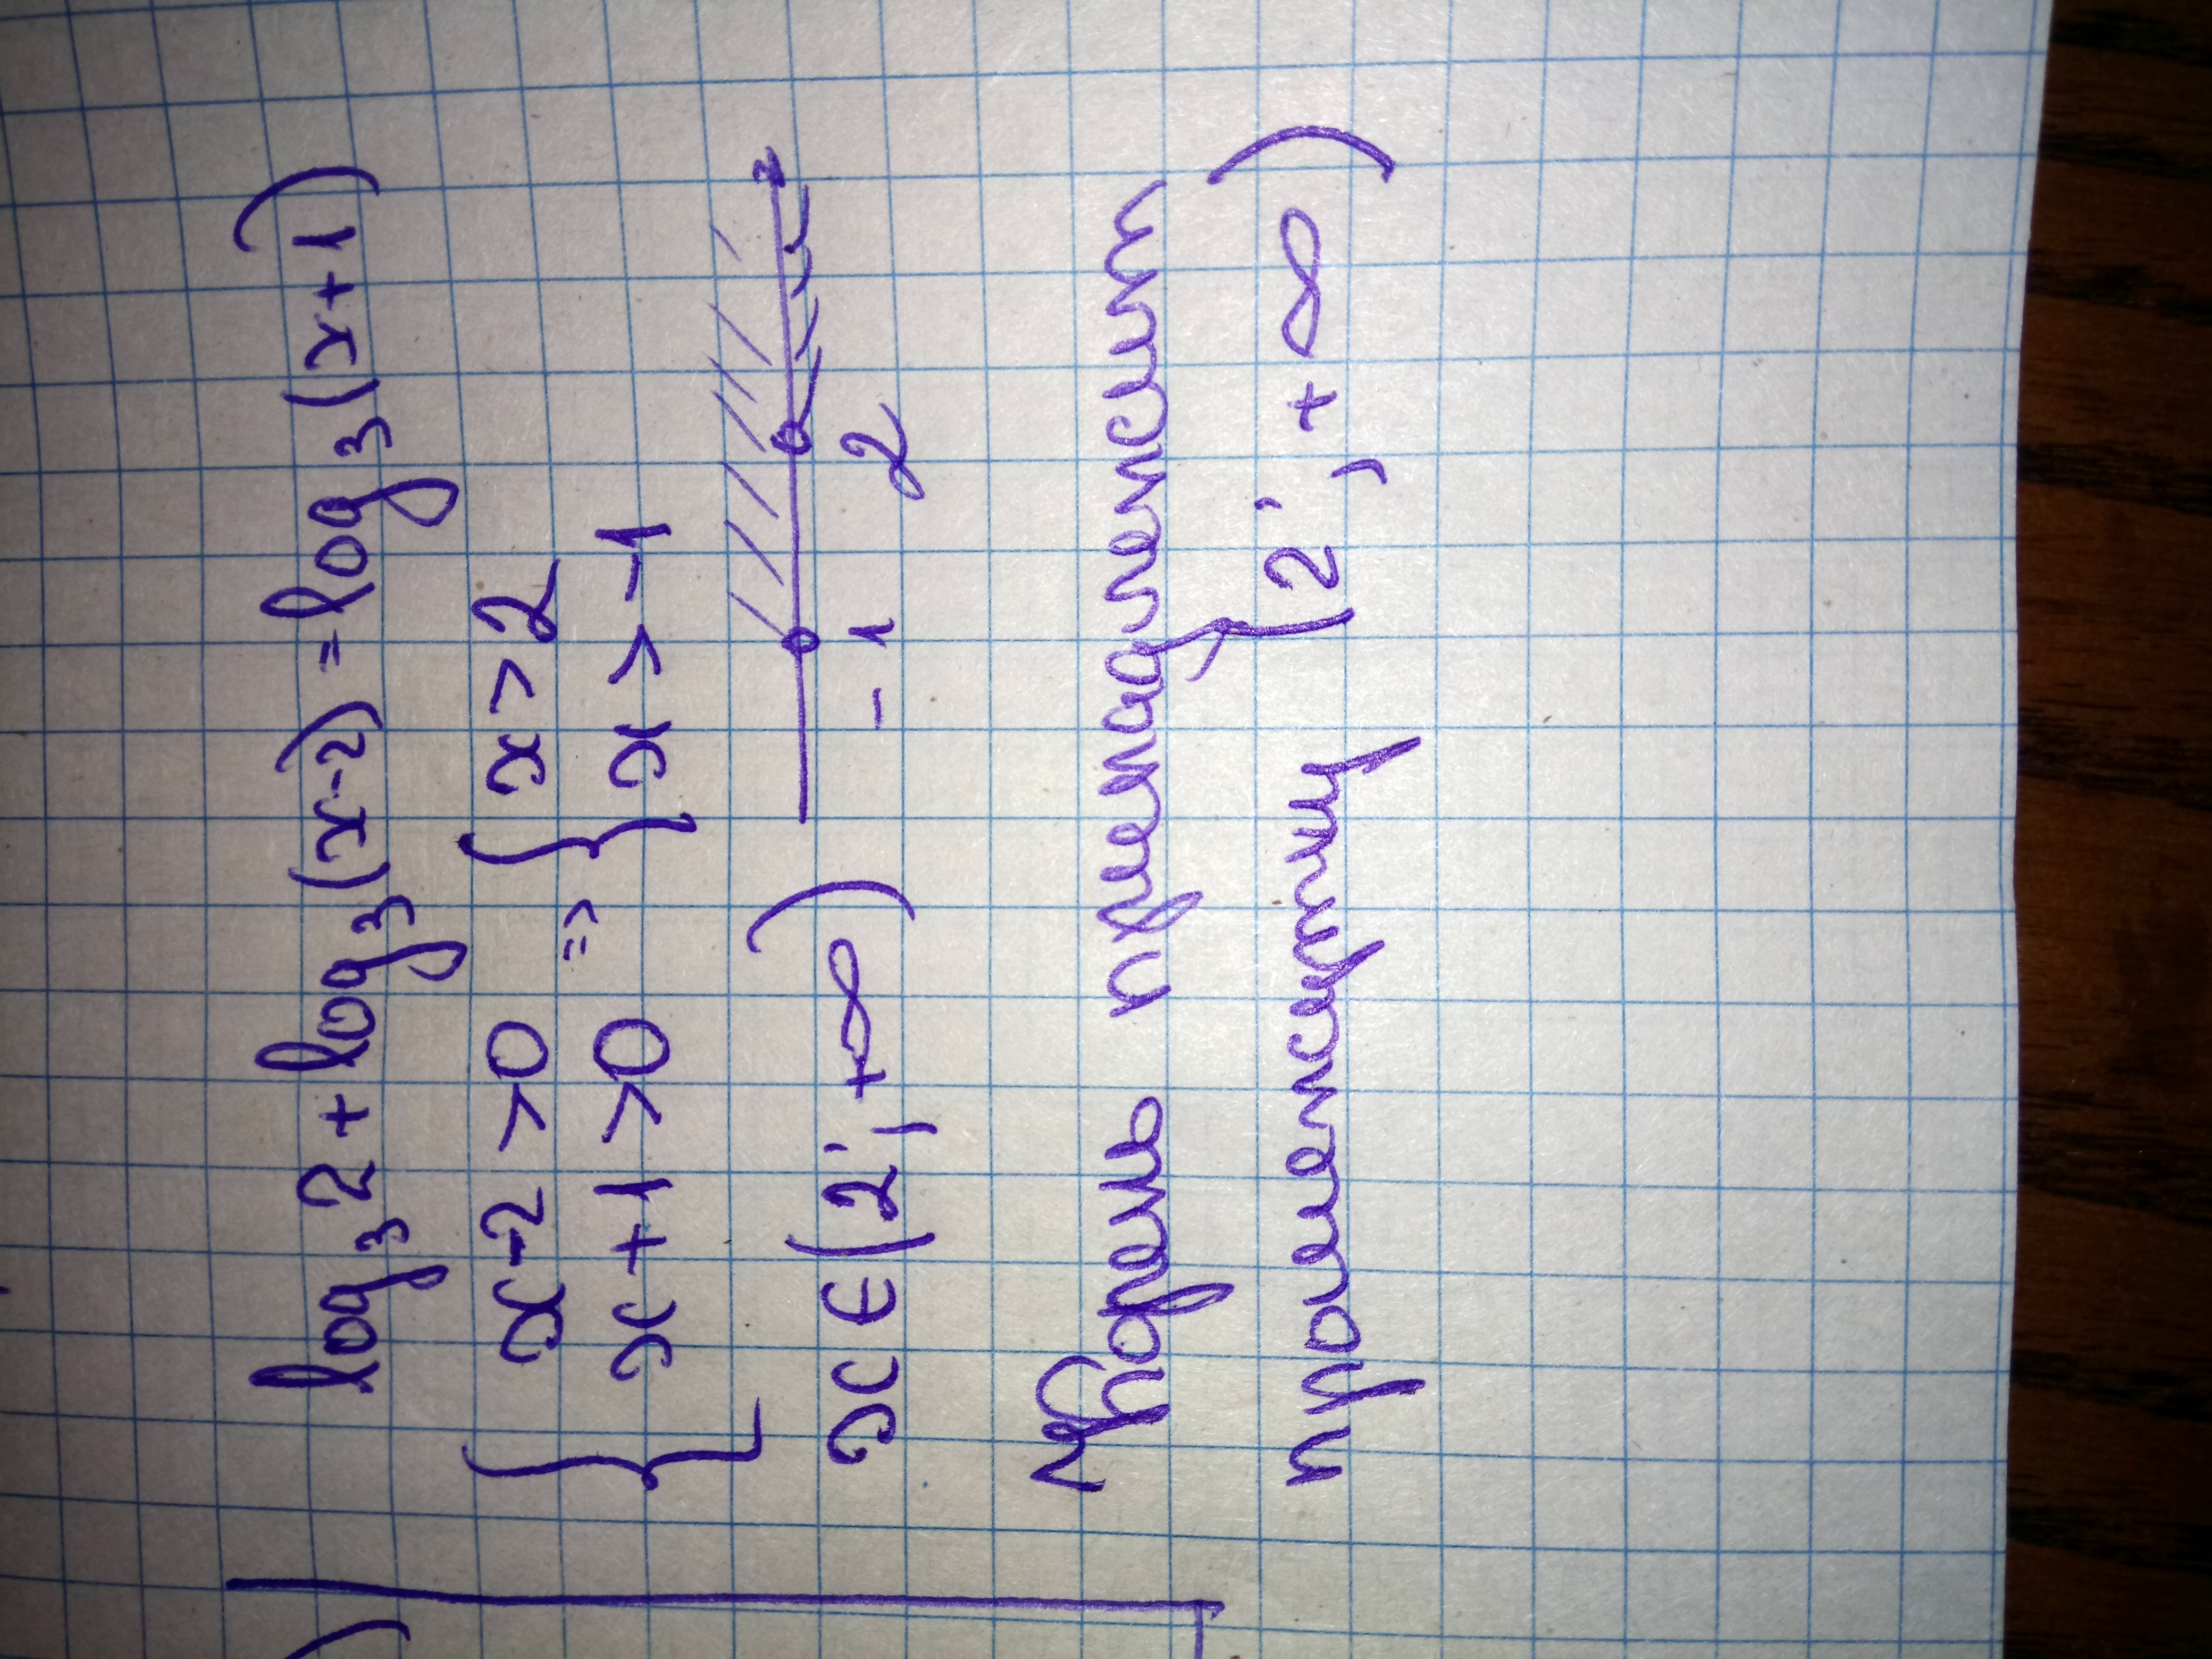 log₃2 + log₃(x-2) = log₃(x+1)
{ x-2 > 0 => { x > 2
x + 1 > 0 x > -1
x ∈ (2; +∞) -1 2
Корень принадлежит
промежутку (2; +∞)